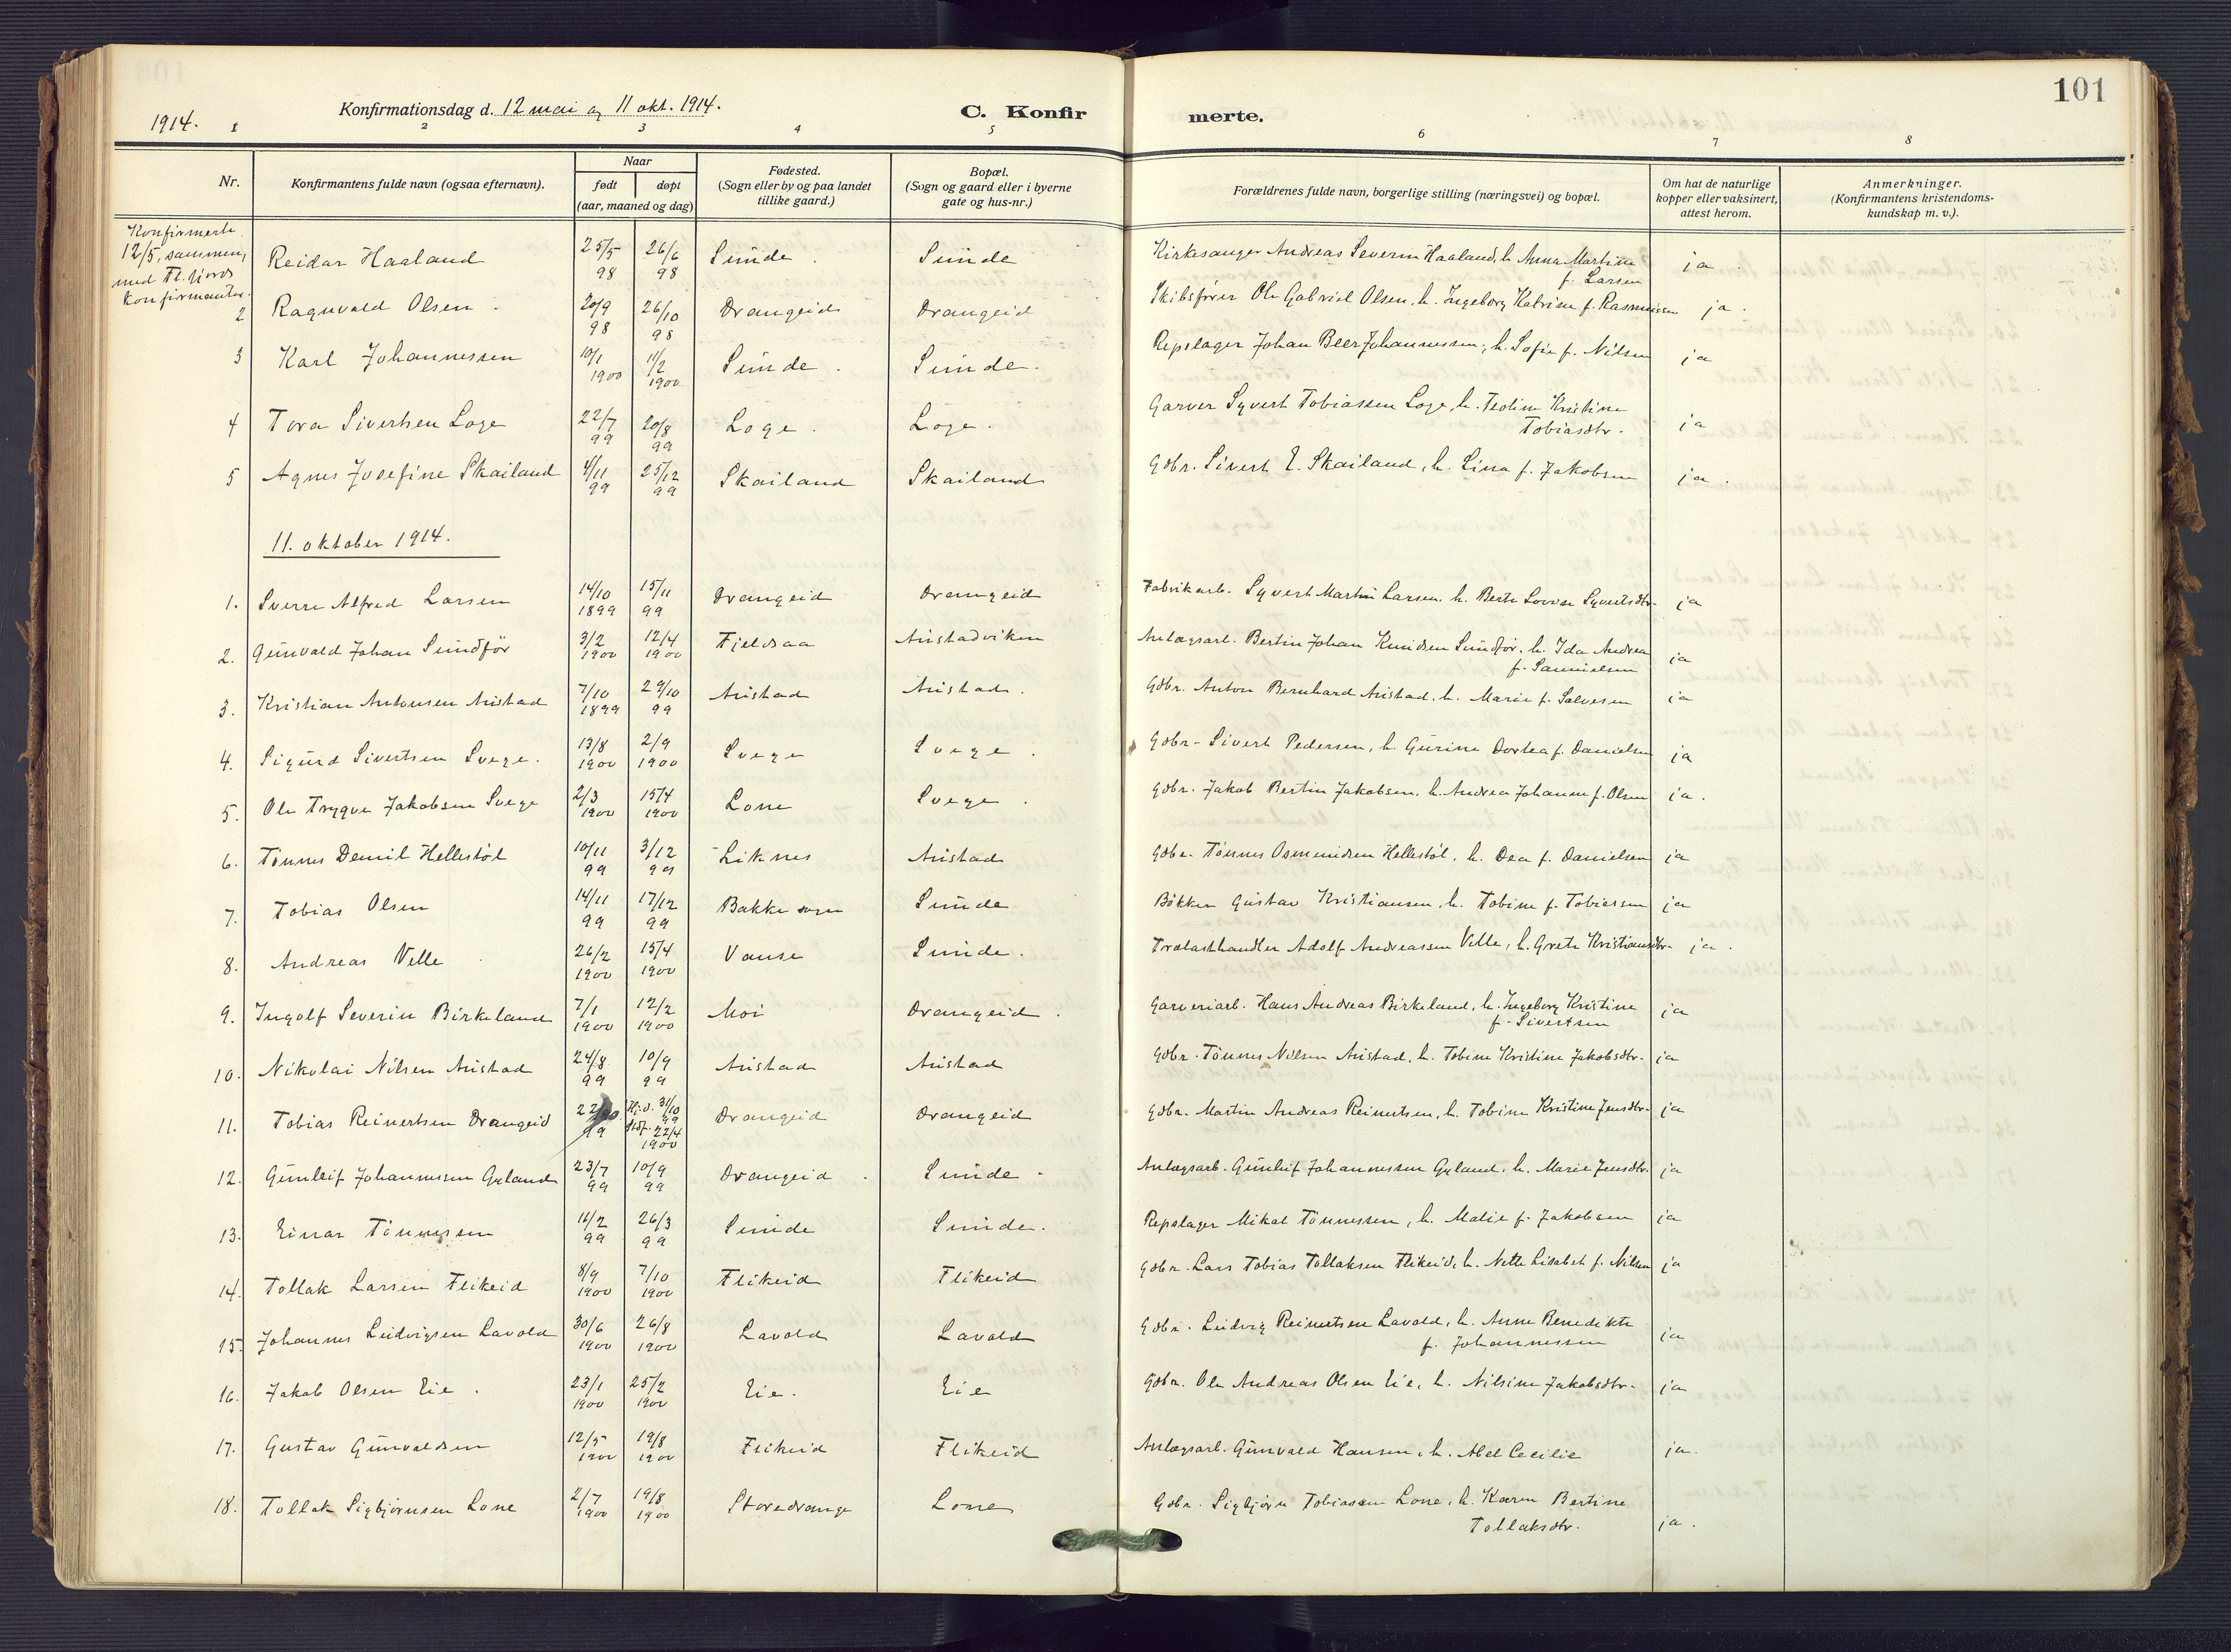 101
1914. Konfirmationsdag d. 12 mai og 11 okt. 1914. C. Konfir merte.
1 2 3 4 5 6 7 8
Nr.
Konfirmantens fulde navn (ogsaa efternavn).
Naar
født døpt
(aar, maaned og dag)
Fødested.
(Sogn eller by og paa landet
tillike gaard.)
Bopæl.
(Sogn og gaard eller i byerne
gate og hus-nr.)
Forældrenes fulde navn, borgerlige stilling (næringsvei) og bopæl.
Om hat de naturlige
kopper eller vaksinert,
attest herom.
Anmerkninger.
(Konfirmantens kristendoms-
kundskap m. v.).
Konfirmerte
12/5, sammen
med Fl. fjords
konfirmanter.
Reidar Haaland 25/5 98 26/6 98 Sunde. Sunde Kirkesanger Andreas Severin Haaland, h. Anna Martine ja.
f. Larsen
2 Ragnvald Olsen. 20/9 98 26/10 98 Drangeid Drangeid Skibsfører Ole Gabriel Olsen, h. Ingeborg Katrine f. Rasmussen ja.
3 Karl Johannessen 10/1 1900 11/2 1900 Sunde. Sunde. Repslager Johan Beer Johannessen, h. Sofie f. Nilsen ja
4 Tora Sivertsen Loge 22/7 99 20/8 99 Loge. Loge. Garver Syvert Tobiassen Loge, h. Teoline Kristine ja
Tobiasdtr.
5 Agnes Josefine Skailand 4/11 99 25/12 99 Skailand Skailand Gdbr. Sivert E. Skailand, h. Lina f. Jakobsen ja.
11. oktober 1914.
1. Sverre Alfred Larsen 14/10 1899 15/11 99 Drangeid Drangeid Fabrikarb. Syvert Martin Larsen, h. Berte Lovise Syvertsdtr. ja
2. Gunvald Johan Sundför 3/2 1900 12/4 1900 Fjeldsaa Austadviken Anlægsarb. Bertin Johan Knudsen Sundför, h. Ida Andrea ja
f. Samuelsen
3. Kristian Antonsen Austad 7/10 1899 29/10 99 Austad Austad. Gdbr. Anton Bernhard Austad, h. Marie f. Salvesen ja
4. Sigurd Sivertsen Svege. 13/8 1900 2/9 1900 Svege Svege. Gdbr. Sivert Pedersen, h. Gurine Dortea f. Danielsen ja
5. Ole Trygve Jakobsen Svege 2/3 1900 15/4 1900 Lone Svege. Gdbr. Jakob Bertin Jakobsen, h. Andrea Johanne f. Olsen ja.
6. Tönnes Demil Hellestöl 10/11 99 3/12 99 Liknes Austad Gdbr. Tönnes Osmundsen Hellestöl, h. Dea f. Danielsen ja
7. Tobias Olsen 14/11 99 17/12 99 Bakke sogn Sunde Bökker Gustav Kristiansen, h. Tobine f. Tobiassen ja
8. Andreas Velle. 26/2 1900 15/4 1900 Vanse Sunde. Trælasthandler Adolf Andreassen Velle, h. Grete Kristiansdtr. ja.
9. Ingolf Severin Birkeland 7/1 1900 12/2 1900 Moi Drangeid. Garveriarb. Hans Andreas Birkeland, h. Ingeborg Kristine ja
f. Sivertsen
10. Nikolai Nilsen Austad 24/8 99 10/9 99 Austad Austad Gdbr. Tönnes Nilsen Austad, h. Tobine Kristine Jakobsdtr. ja
11. Tobias Reinertsen Drangeid 99 Hj.d. 31/10 99 Stdf. 22/4 1900 Drangeid Drangeid Gdbr. Martin Andreas Reinertsen, h. Tobine Kristine Jensdtr. ja
12. Gunleif Johannessen Gyland 23/7 99 10/9 99 Drangeid. Sunde. Anlægsarb. Gunleif Johannessen Gyland, h. Marie Jensdtr. ja
13. Einar Tönnessen 11/2 99 26/3 99 Sunde Sunde. Repslager Mikal Tönnessen, h. Malie f. Jakobsen ja
14. Tollak Larsen Flikeid 8/9 1900 7/10 1900 Flikeid Flikeid Gdbr. Lars Tobias Tollaksen Flikeid, h. Nelle Lisabet f. Nilsen ja
15. Johannes Ludvigsen Lavold 30/6 1900 26/8 1900 Lavold Lavold Gdbr. Ludvig Reinertsen Lavold, h. Anne Benedikte ja
f. Johannessen
16. Jakob Olsen Eie. 23/1 1900 25/2 1900 Eie. Eie Gdbr. Ole Andreas Olsen Eie, h. Nilsine Jakobsdtr. ja
17. Gustav Gunvaldsen 12/5 1900 19/8 1900 Flikeid Flikeid Anlægsarb. Gunvald Hansen, h. Abel Cecilie ja.
18. Tollak Sigbjörnsen Lone 2/7 1900 19/8 1900 Storedrange Lone Gdbr. Sigbjörn Tobiassen Lone, h. Karen Bertine
Tollaksdtr. ja.